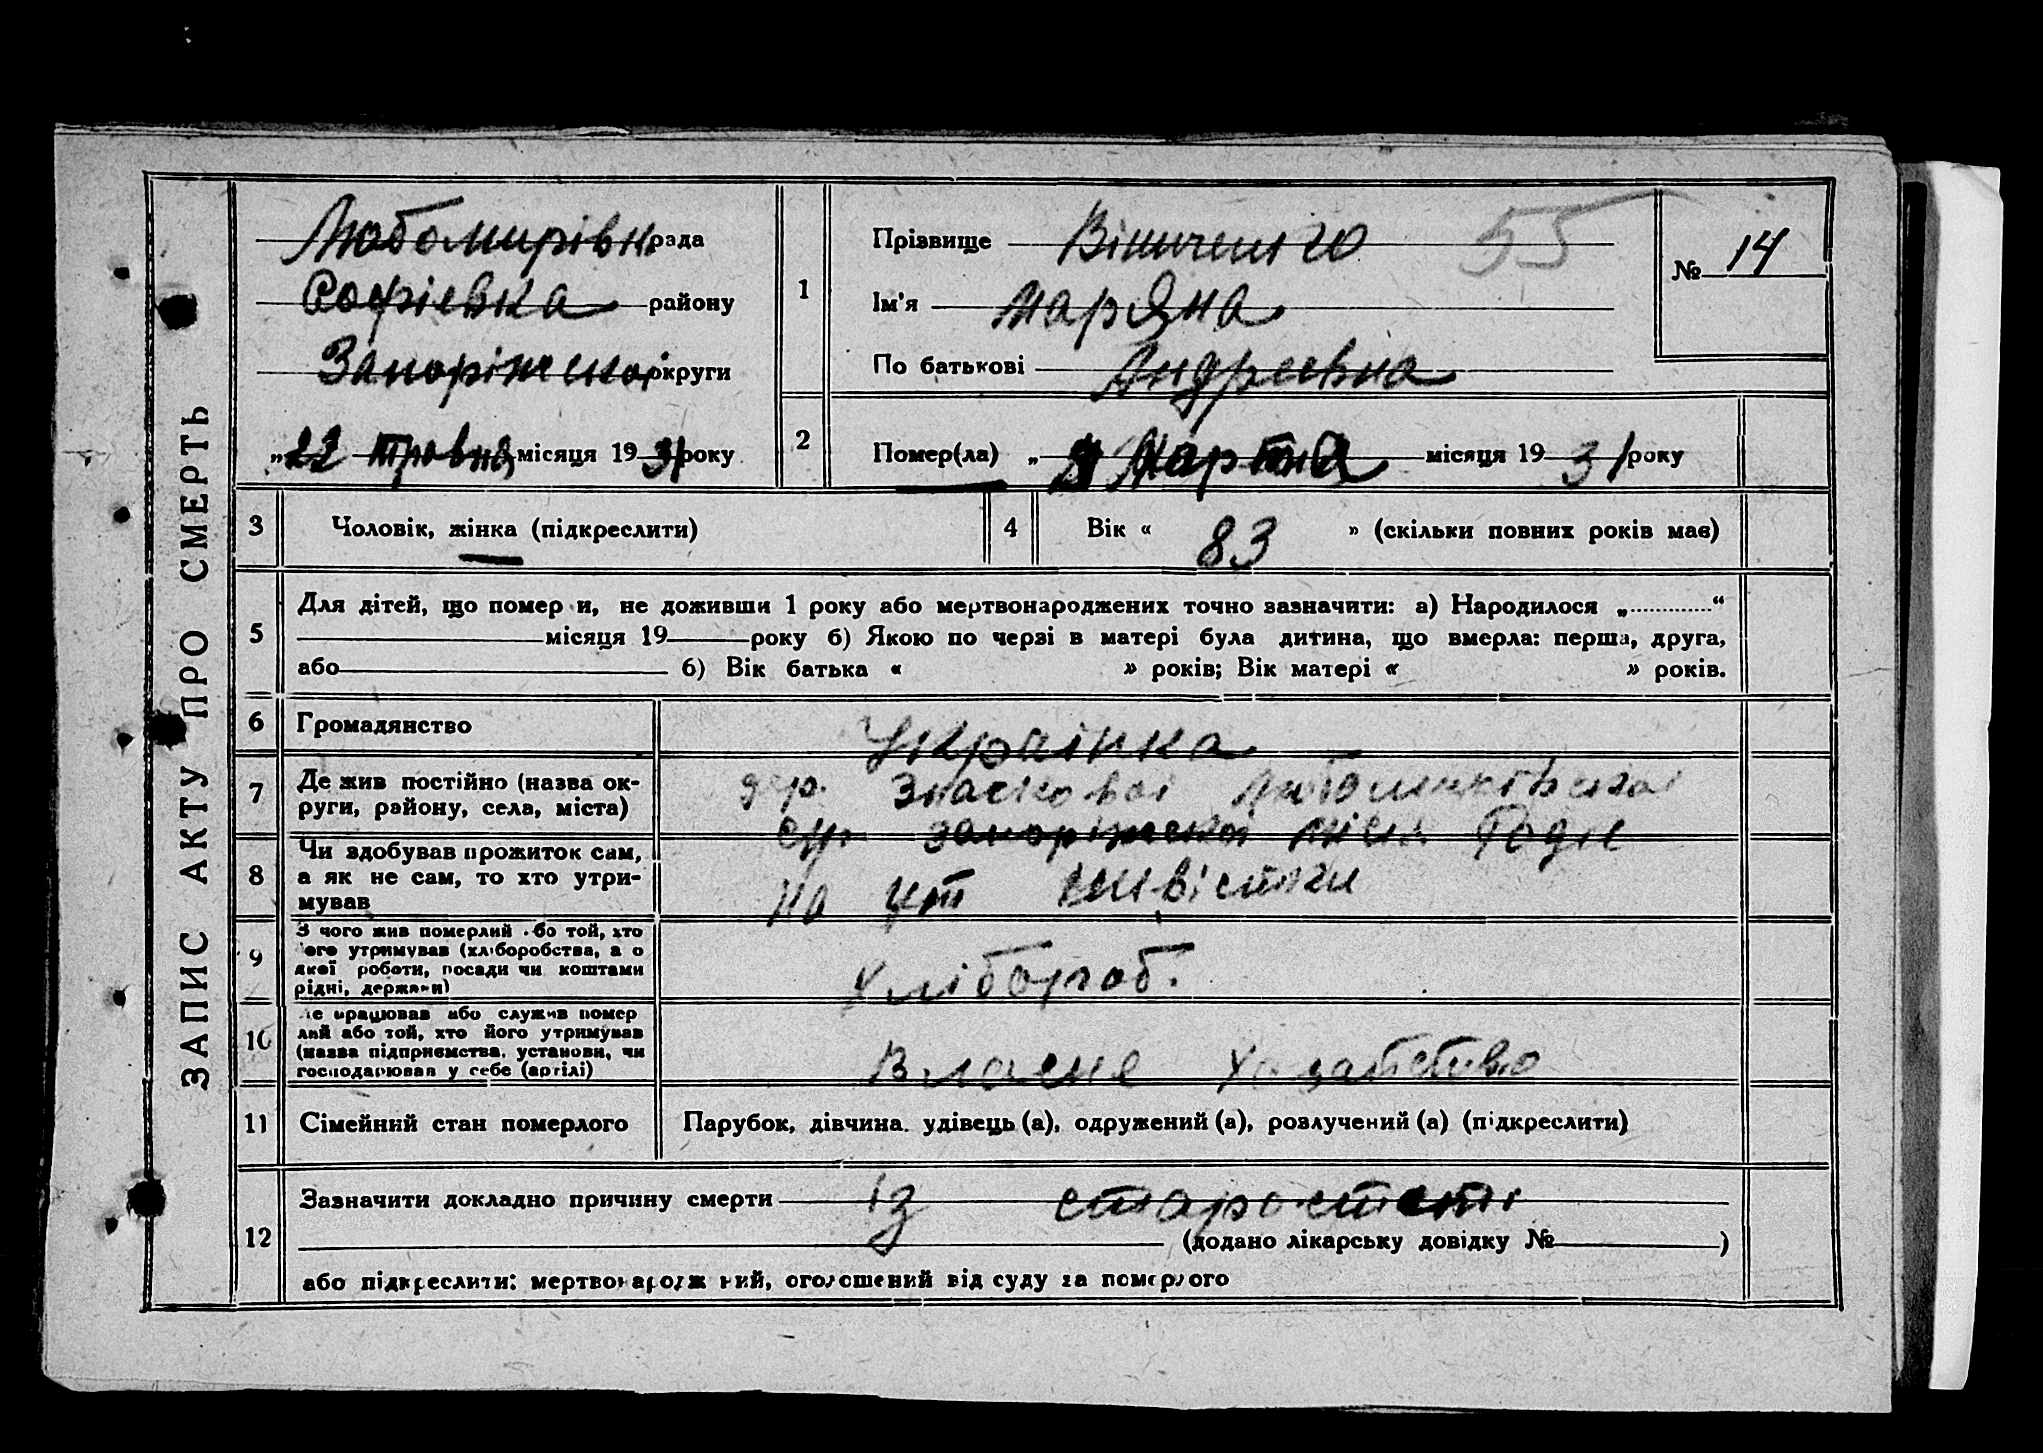 ЗАПИС АКТУ ПРО СМЕРТЬ
Любомирівк рада
Софіевка району
Запоріжскоі округи
„22 травня місяця 1931 року
1
Прізвище 55
Ім'я Марیяна
По батькові Андреевна
№ 14
2
Помер(ла) „ Мартa місяця 1931 року
3 Чоловік, жінка (підкреслити)
4 Вік « 83 » (скільки повних років має)
5 Для дітей, що помер и, не доживши 1 року або мертвонароджених точно зазначити: а) Народилося „ “
місяця 19 року б) Якою по черзі в матері була дитина, що вмерла: перша, друга,
або б) Вік батька « » років; Вік матері « » років.
6 Громадянство Украінка
7 Де жив постійно (назва ок-
руги, району, села, міста)
запоріжскоі
8 Чи здобував прожиток сам,
а як не сам, то хто утри-
мував
на невістки
9 З чого жив померлий або той, хто
його утримував (хліборобства, а о
якої роботи, посади чи коштами
рідні, держави)
Хлібороб.
10 Де працював або служив помер
лий або той, хто його утримував
(назва підприємства, установи, чи
господарював у себе (артілі)
Власне Хазайство
11 Сімейний стан померлого Парубок, дівчина, удівець (а), одружений (а), розлучений (а) (підкреслити)
12 Зазначити докладно причину смерти із старости
(додано лікарську довідку № )
або підкреслити: мертвонародж ний, оголошений від суду за померлого